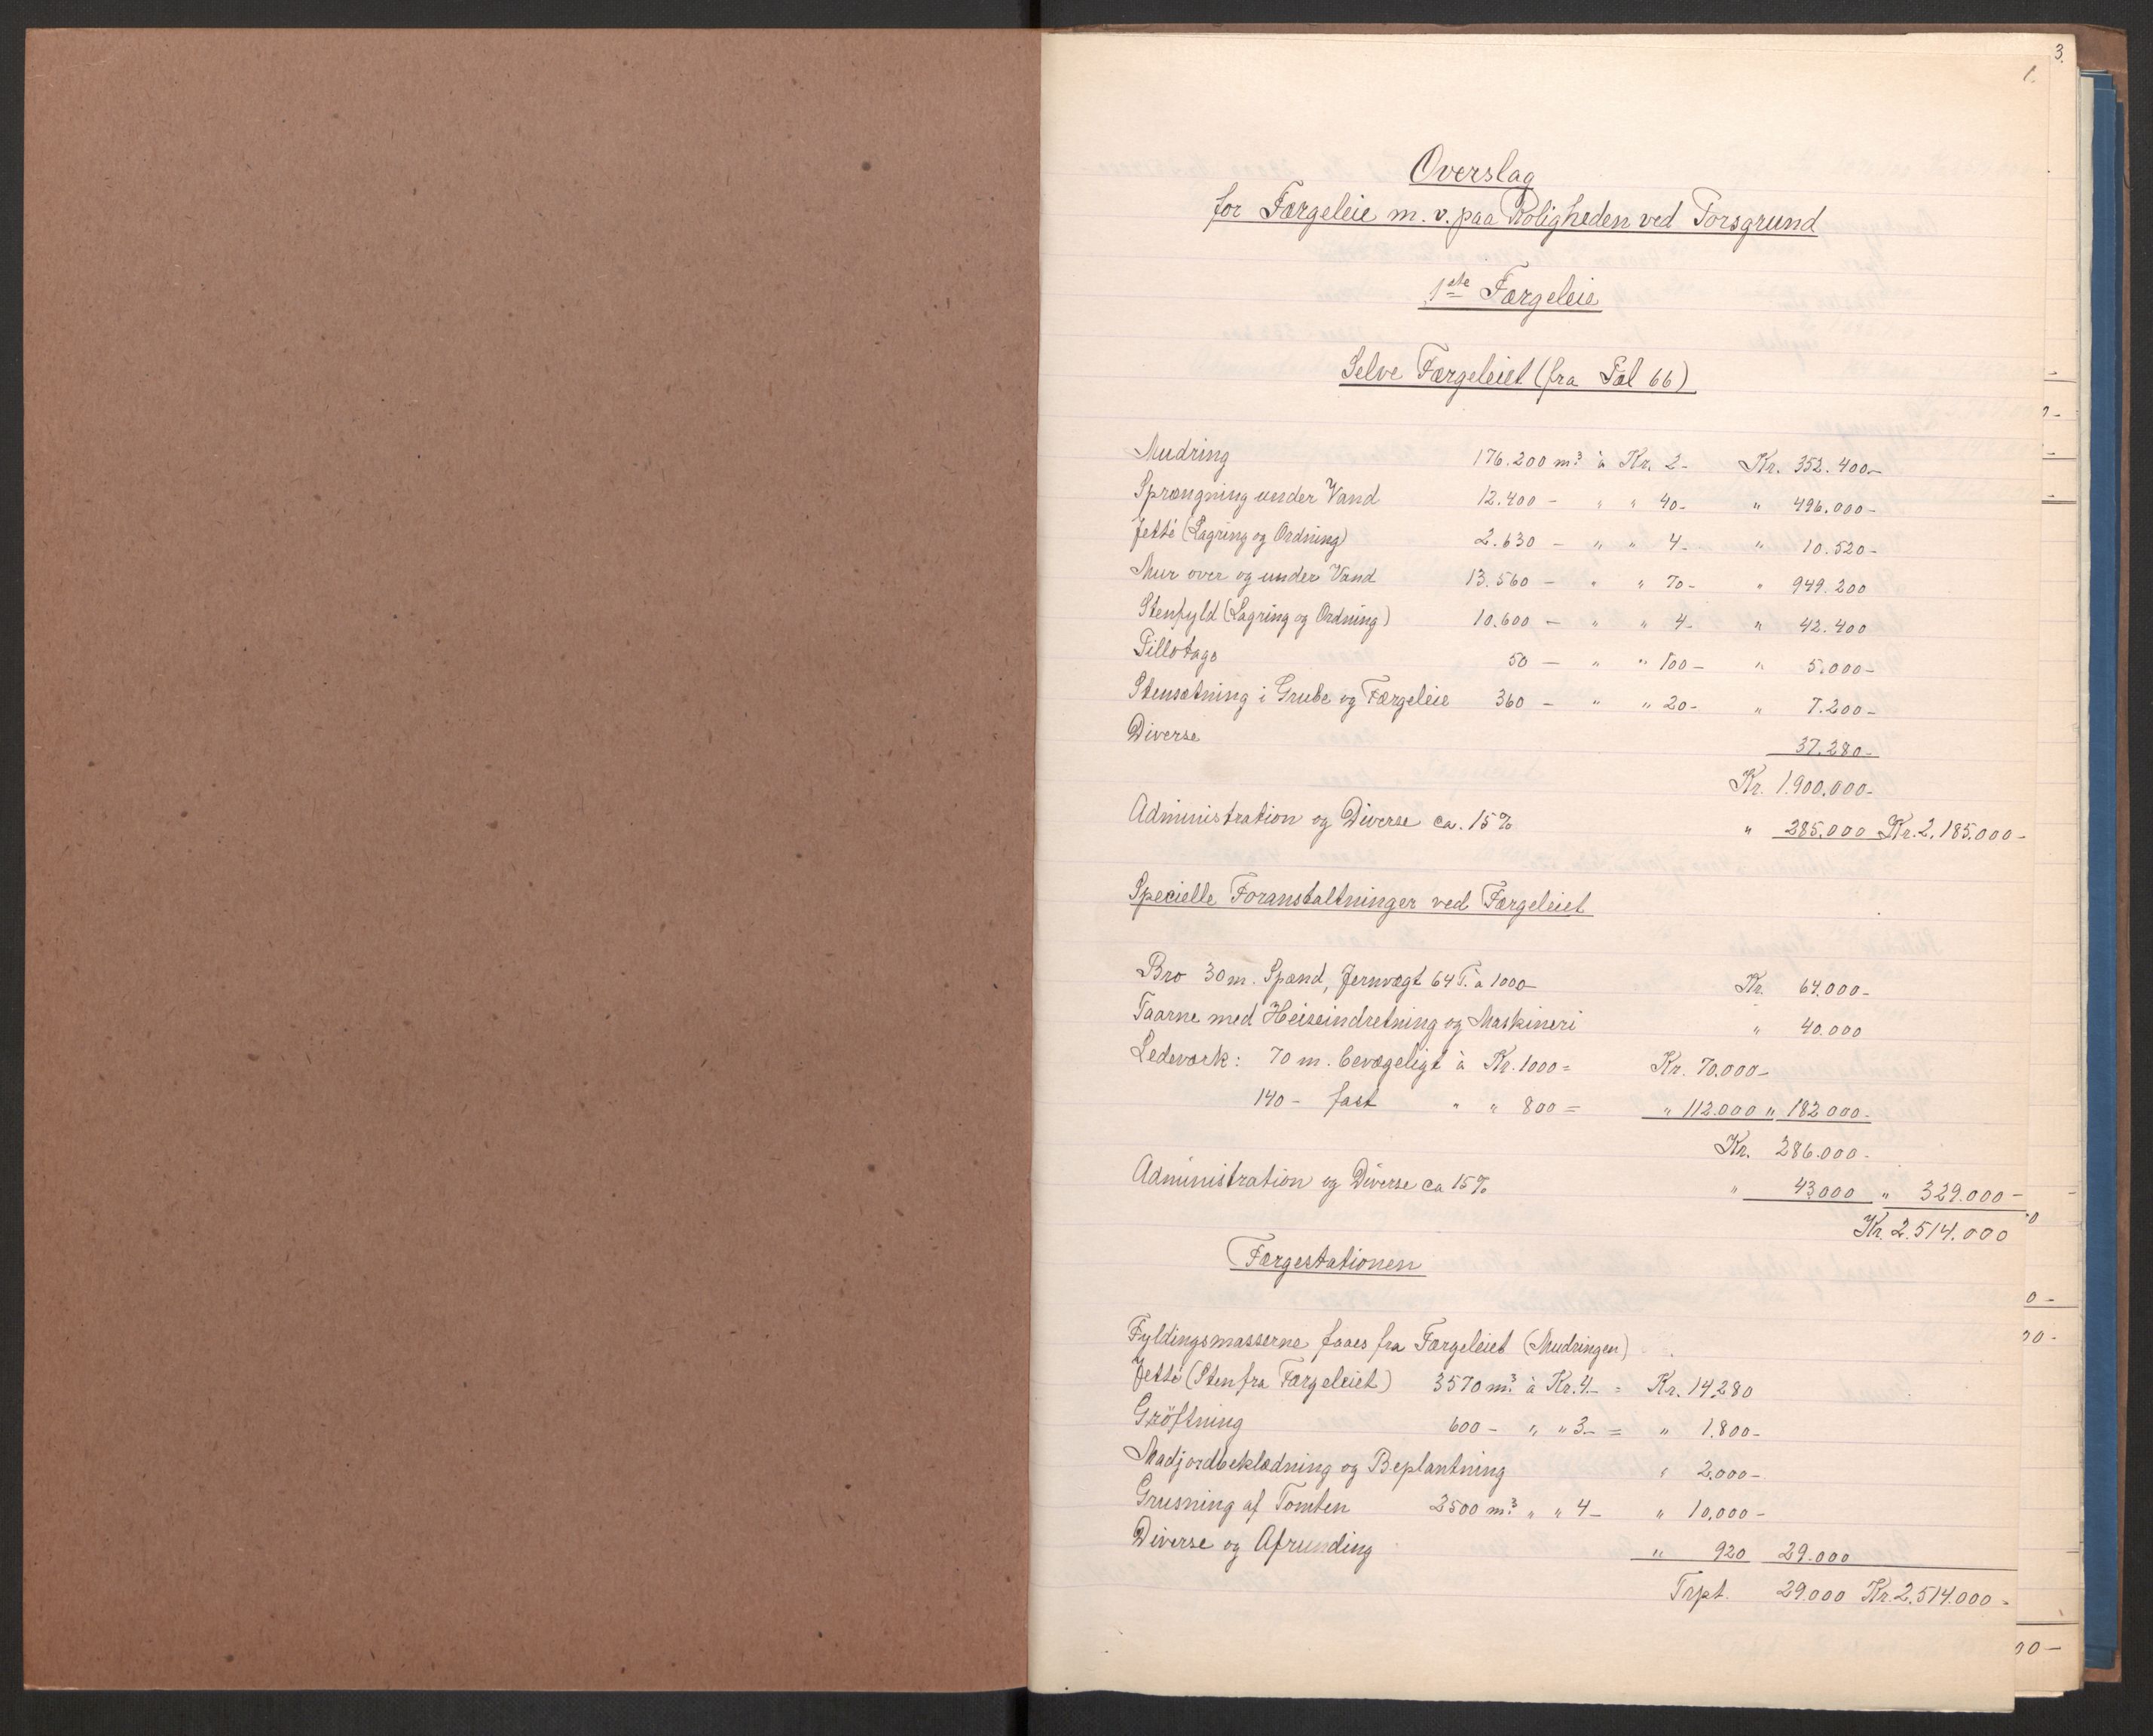 3.
1.
Overslag
for Færgeleie m. v. paa Roligheden ved Porsgrund
1ste Færgeleie
Selve Færgeleiet (fra Pæl 66)
Mudring 176.200 m³ à Kr. 2- Kr. 352.400-
Sprængning under Vand 12.400 - " " 40- " 496.000-
Jetté (Lagring og Ordning) 2.630 - " " 4- " 10.520-
Mur over og under Vand 13.560 - " " 70- " 949.200
Stenfyld (Lagring og Ordning) 10.600 - " " 4- " 42.400
Pillotage 50 - " " 100- " 5.000-
Stensætning i Grube og Færgeleie 360 - " " 20- " 7.200-
Diverse 37.280-
Kr. 1.900.000-
Administration og Diverse ca. 15% " 285.000 Kr. 2.185.000-
Specielle Foranstaltninger ved Færgeleiet
Bro 30 m. Spænd, Jernvægt 64 T. à 1000- Kr. 64.000-
Taarne med Heiseindretning og Maskineri " 40.000
Ledeværk: 70 m. bevægeligt à Kr. 1000 = Kr. 70.000-
140 - fast " " 800 = " 112.000 " 182.000-
Kr. 286.000-
Administration og Diverse ca 15% " 43.000 " 329.000-
Kr. 2.514.000
Færgestationen
Fyldingsmasserne faaes fra Færgeleiet (Mudringen)
Jetté (Sten fra Færgeleiet) 3570 m³ à Kr. 4.- = Kr. 14.280
Gröftning 600 - " " 3.- = " 1.800-
Madjordbeklædning og Beplantning " 2.000-
Grusning af Tomten 2500 m³ " " 4- " 10.000-
Diverse og Afrunding " 920 29.000
Trpt. 29.000 Kr. 2.514.000-